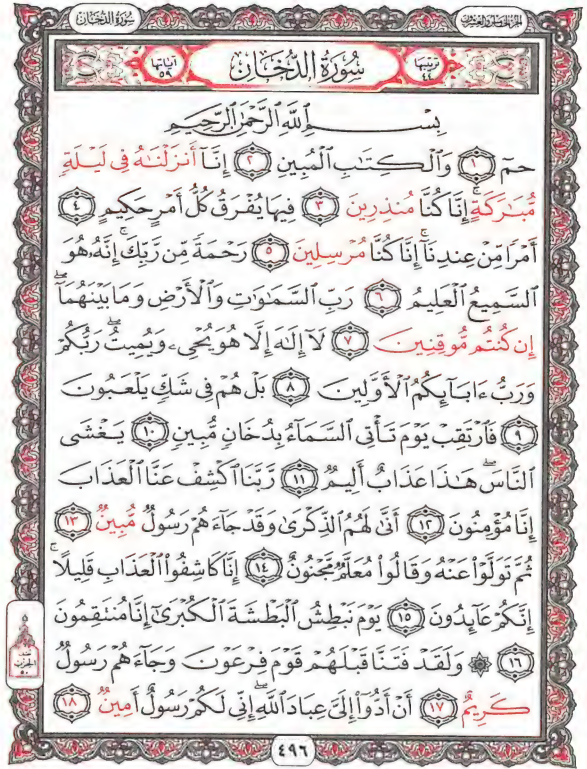 سُورَةُ الدُّخَانِ
الجُزْءُ الخَامِسُ وَالعِشْرُونَ
آيَاتُهَا ٥٩
سُورَةُ الدُّخَانِ
تَرْتِيبُهَا ٤٤
بِسْمِ ٱللَّهِ ٱلرَّحْمَٰنِ ٱلرَّحِيمِ
حمٓ ١ وَٱلْكِتَٰبِ ٱلْمُبِينِ ٢ إِنَّآ أَنزَلْنَٰهُ فِى لَيْلَةٍ
مُّبَٰرَكَةٍ ۚ إِنَّا كُنَّا مُنذِرِينَ ٣ فِيهَا يُفْرَقُ كُلُّ أَمْرٍ حَكِيمٍ ٤
أَمْرًا مِّنْ عِندِنَآ ۚ إِنَّا كُنَّا مُرْسِلِينَ ٥ رَحْمَةً مِّن رَّبِّكَ ۚ إِنَّهُۥ هُوَ
ٱلسَّمِيعُ ٱلْعَلِيمُ ٦ رَبِّ ٱلسَّمَٰوَٰتِ وَٱلْأَرْضِ وَمَا بَيْنَهُمَآ ۖ
إِن كُنتُم مُّوقِنِينَ ٧ لَآ إِلَٰهَ إِلَّا هُوَ يُحْىِۦ وَيُمِيتُ ۖ رَبُّكُمْ
وَرَبُّ ءَابَآئِكُمُ ٱلْأَوَّلِينَ ٨ بَلْ هُمْ فِى شَكٍّ يَلْعَبُونَ
٩ فَٱرْتَقِبْ يَوْمَ تَأْتِى ٱلسَّمَآءُ بِدُخَانٍ مُّبِينٍ ١٠ يَغْشَى
ٱلنَّاسَ ۖ هَٰذَا عَذَابٌ أَلِيمٌ ١١ رَّبَّنَا ٱكْشِفْ عَنَّا ٱلْعَذَابَ
إِنَّا مُؤْمِنُونَ ١٢ أَنَّىٰ لَهُمُ ٱلذِّكْرَىٰ وَقَدْ جَآءَهُمْ رَسُولٌ مُّبِينٌ ١٣
ثُمَّ تَوَلَّوْا۟ عَنْهُ وَقَالُوا۟ مُعَلَّمٌ مَّجْنُونٌ ١٤ إِنَّا كَاشِفُوا۟ ٱلْعَذَابِ قَلِيلًا ۚ
إِنَّكُمْ عَآئِدُونَ ١٥ يَوْمَ نَبْطِشُ ٱلْبَطْشَةَ ٱلْكُبْرَىٰٓ إِنَّا مُنتَقِمُونَ
١٦ ۞ وَلَقَدْ فَتَنَّا قَبْلَهُمْ قَوْمَ فِرْعَوْنَ وَجَآءَهُمْ رَسُولٌ
كَرِيمٌ ١٧ أَنْ أَدُّوٓا۟ إِلَىَّ عِبَادَ ٱللَّهِ ۖ إِنِّى لَكُمْ رَسُولٌ أَمِينٌ ١٨
٤٩٦